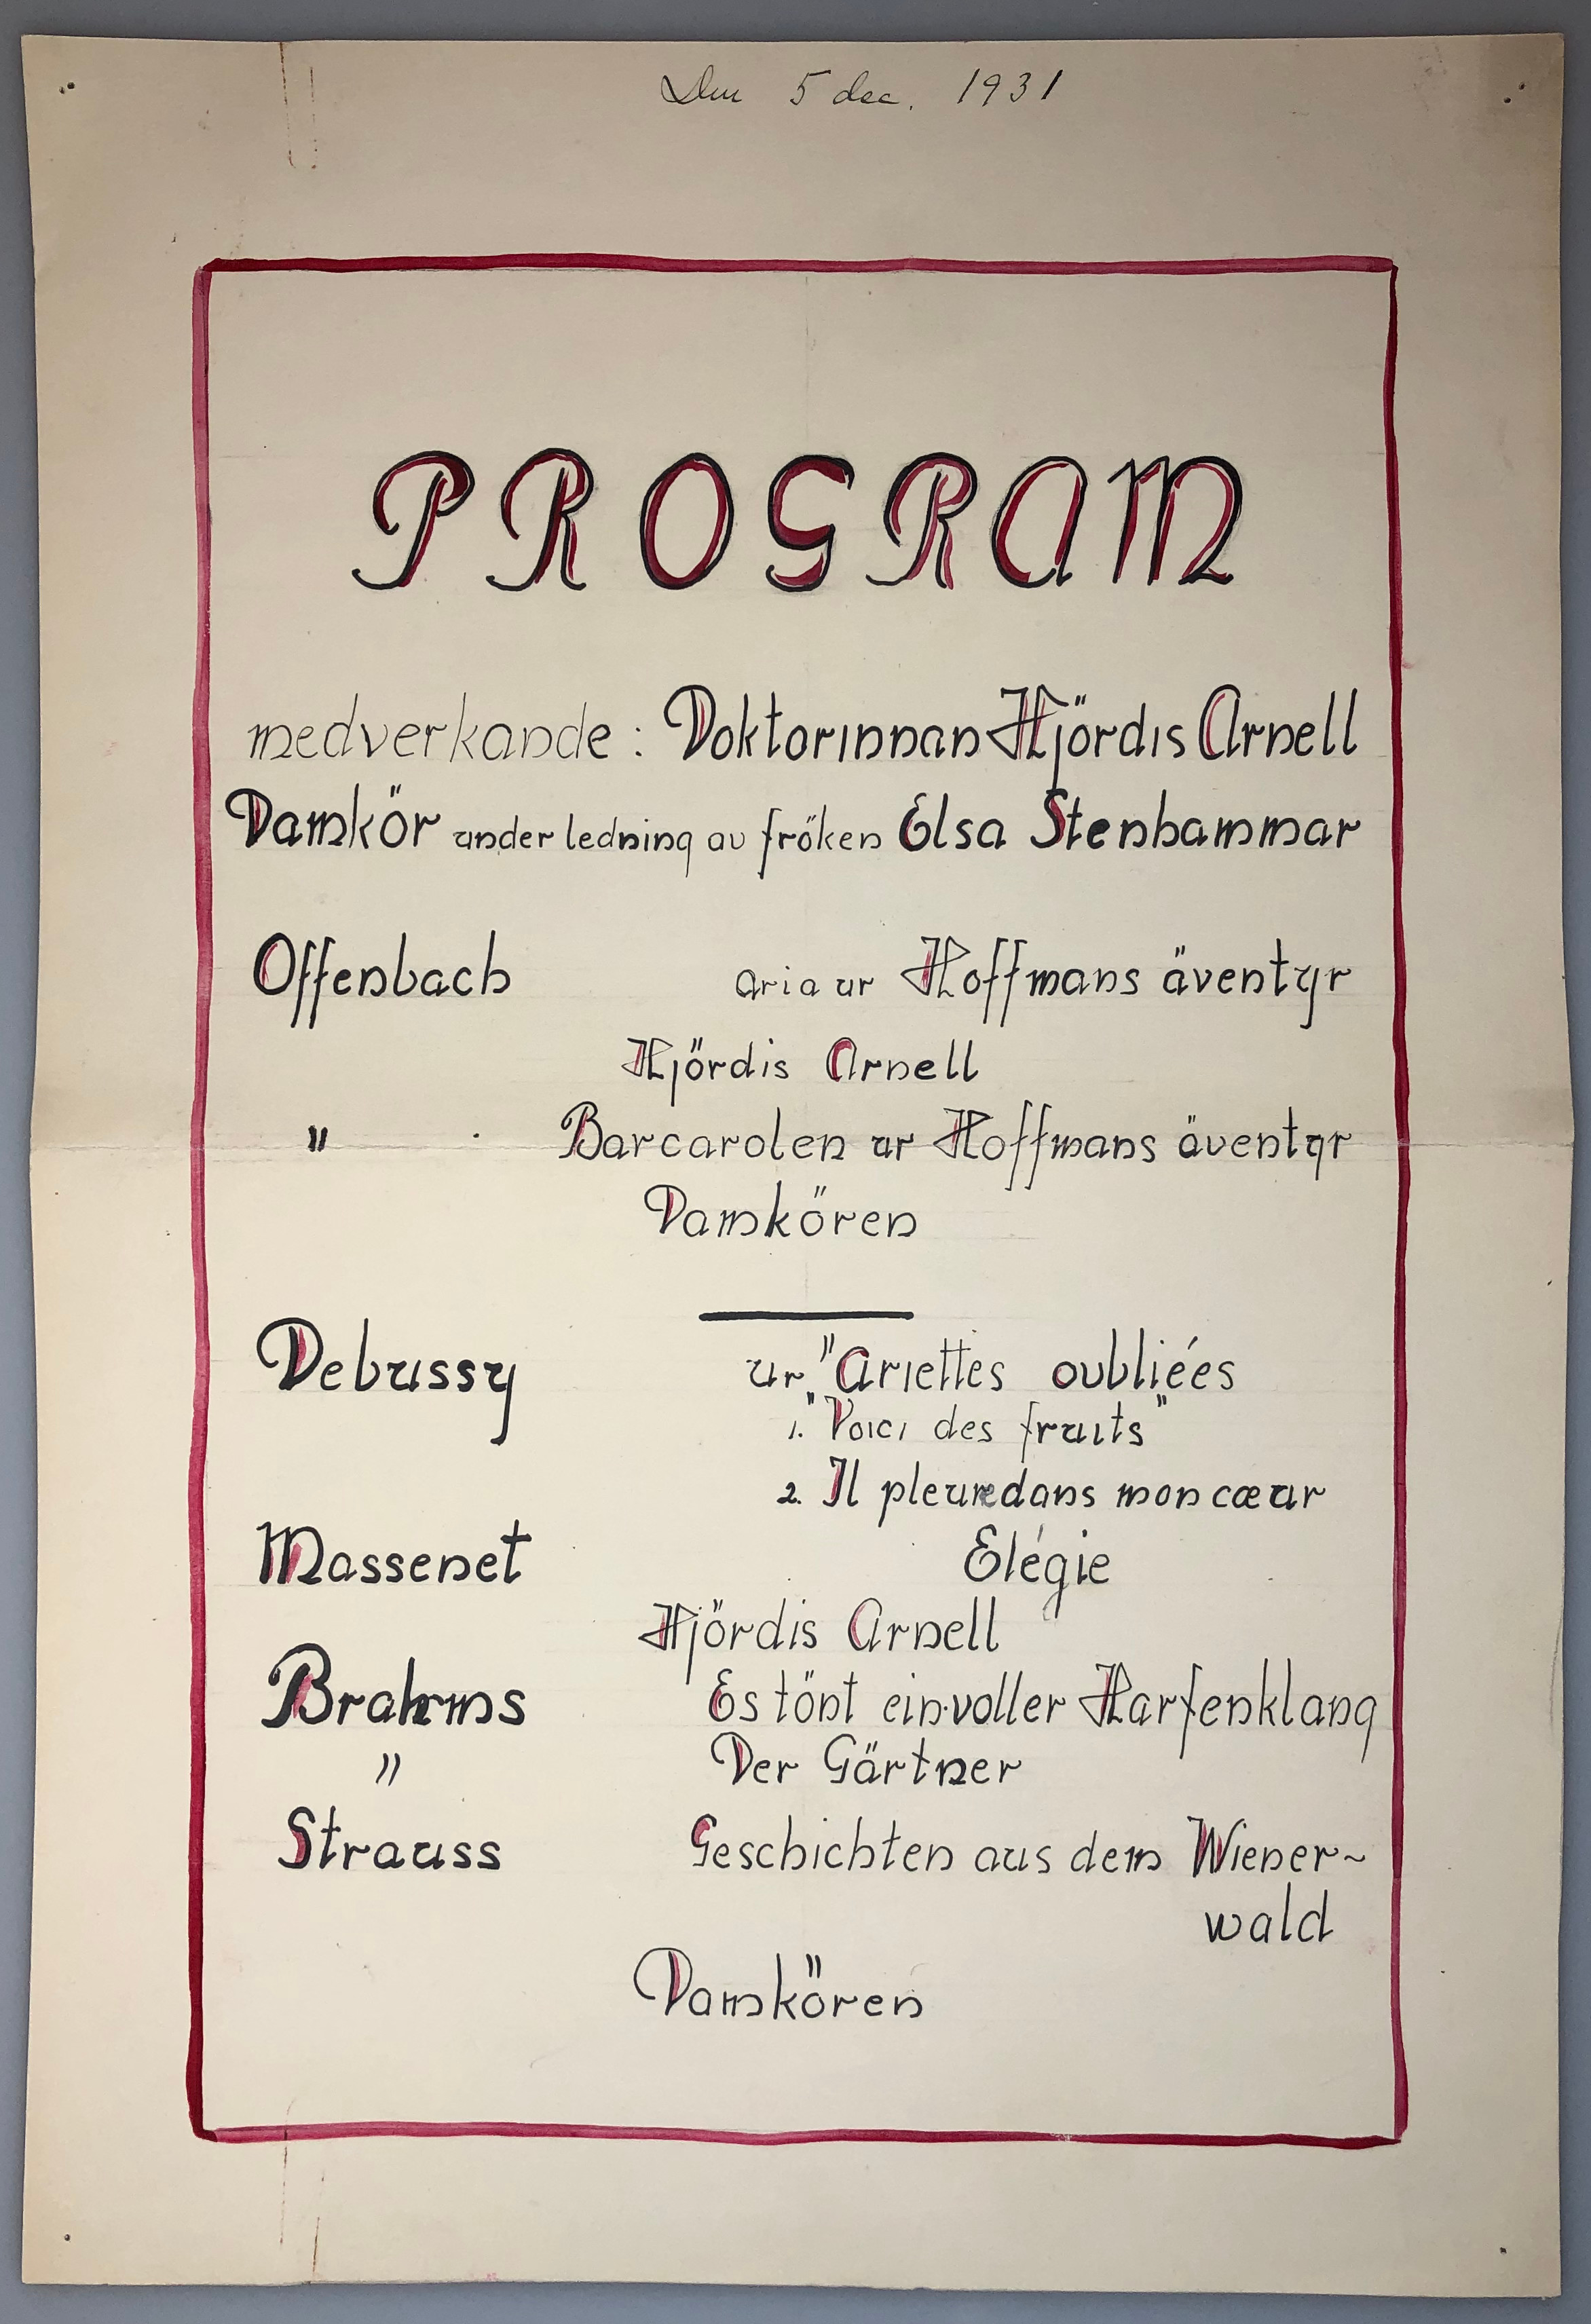 Den 5 dec. 1931
PROGRAM
medverkande: Doktorinnan Hjördis Arnell
Damkör under ledning av fröken Elsa Stenhammar
Offenbach aria ur Hoffmans äventyr
Hjördis Arnell
" Barcarolen ur Hoffmans äventyr
Damkören
Debussy ur "Ariettes oubliéés
1. "Voici des fruits"
2. Il pleure dans mon cœur
Massenet Elégie
Hjördis Arnell
Brahms Es tönt ein voller Harfenklang
" Der Gärtner
Strauss Geschichten aus dem Wiener~
wald
Damkören